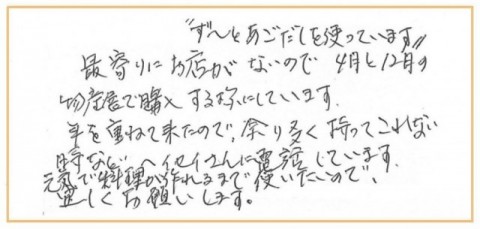 〝ずーっとあごだしを使っています〟
最寄りにお店がないので 4月と12月の
物産展で購入する様にしています.
年を重ねて来たので、余り多く持ってこれない
時など、へイセイさんに電話しています.
元気で料理が作れるまで使いたいので、
宜しくお願いします。